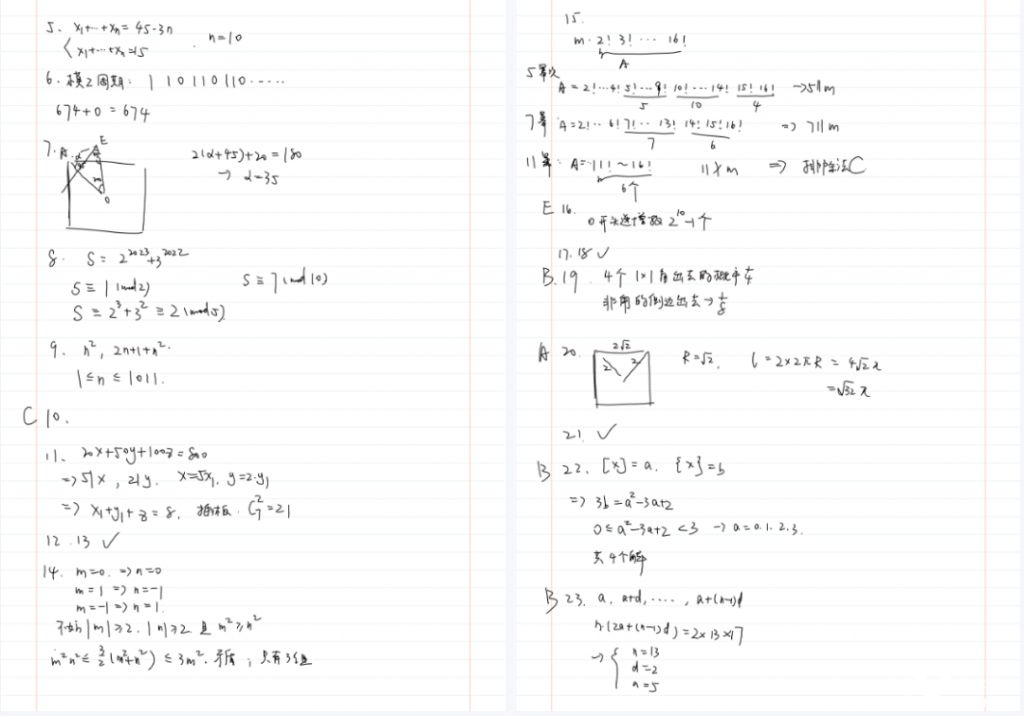 5. x₁+…+xₙ = 45-3n
x₁+…+xₙ=15
n=10
6. 模2周期: 1 1 0 1 1 0 1 1 0 ……
674+0 = 674
7.
A
E
α
20
O
2(α+45)+20=180
→ α=35
8. S = 2²⁰²³+3²⁰²²
S ≡ 1 (mod 2)
S ≡ 2³+3² ≡ 2 (mod 5)
S ≡ 7 (mod 10)
9. n², 2n+1+n².
1≤n≤1011.
C 10.
11. 20x+50y+100z=800
=> 5|x, 2|y. x=5x₁, y=2·y₁
=> x₁+y₁+z=8, 插板. C₇²=21
12. 13 ✓
14. m=0. => n=0
m=1 => n=-1
m=-1 => n=1.
不妨|m|≥2. |n|≥2 且 m²≥n²
m²n²≤ 3/2(m²+n²) ≤3m². 矛盾; 只有3组
15.
m·2! 3! … 16!
A
5幂次
A=2!…4! 5!…9! 10!…14! 15! 16! →5||m
5 10 4
7幂 A=2!…6! 7!…13! 14! 15! 16! => 7||m
7 6
11幂: A=11!~16! 11∤m => 排除法C
6个
E 16.
0开头递增数 2¹⁰-1个
17. 18 ✓
B. 19. 4个1×1角出去的概率1/4
非角的侧边出去→1/8
A 20.
2√2
2 2
R=√2. l=2×2πR = 4√2π
=√32π
21. ✓
B 22. [x]=a. {x}=b
=> 3b=a²-3a+2
0≤a²-3a+2<3 → a=0.1.2.3.
共4个解
B 23. a, a+d, ……, a+(n-1)d
n(2a+(n-1)d)=2×13×17
→ { n=13
d=2
a=5